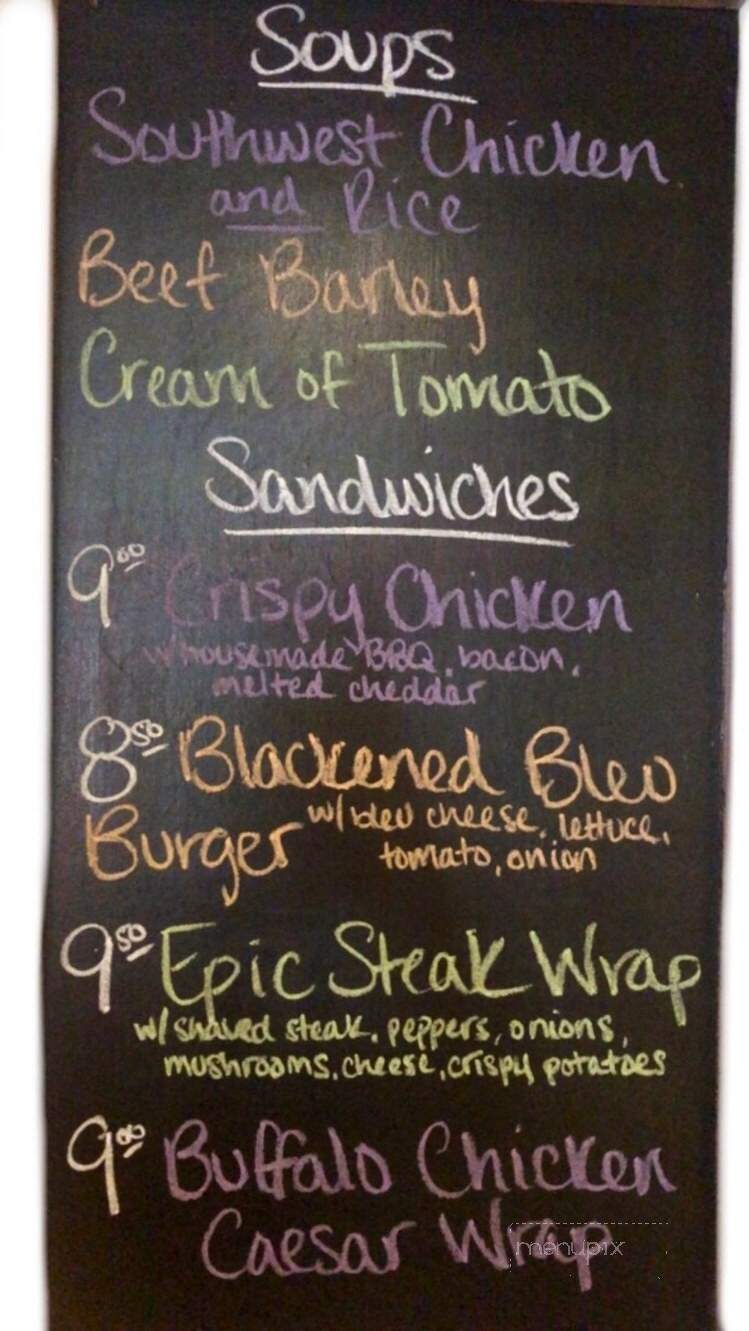 Soups
Southwest Chicken
and Rice
Beef Barley
Cream of Tomato
Sandwiches
9.00 Crispy Chicken
w/housemade BBQ, bacon,
melted cheddar
8.50 Blackened Bleu
Burger w/bleu cheese, lettuce,
tomato, onion
9.50 Epic Steak Wrap
w/shaved steak, peppers, onions,
mushrooms, cheese, crispy potatoes
9.00 Buffalo Chicken
Caesar Wrap
menupix